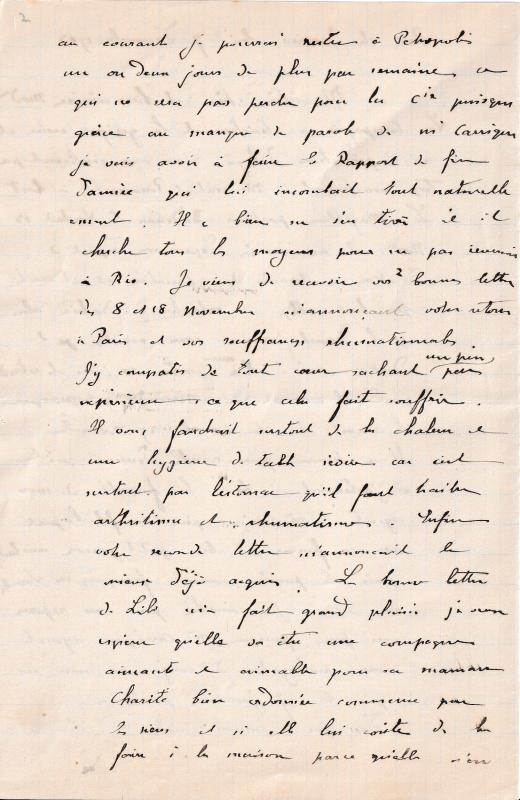 2
au courant je pourrai rester à Petropolis
un ou deux jours de plus par semaine, ce
qui ne sera pas perdu pour la Cie puisque
grâce au manque de parole de Mr Carrigue
je vais avoir à faire le Rapport de fin
d'année qui lui incombait tout naturelle
ment. Il a bien su s'en tirer et il
cherche tous les moyens pour ne pas revenir
à Rio. Je viens de recevoir vos 2 bonnes lettres
des 8 et 18 Novembre m'annonçant votre retour
à Paris et vos souffrances rhumatismales
J'y compatis de tout cœur sachant par
un peu
expérience ce que cela fait souffrir.
Il vous faudrait surtout de la chaleur et
une hygiène de table sévère car c'est
surtout par l'estomac qu'il faut traiter
arthritisme et rhumatisme. Enfin
votre seconde lettre m'annonçait le
mieux déjà acquis. La bonne lettre
de Lili m'a fait grand plaisir je veux
espérer qu'elle va être une compagne
aimante et aimable pour sa maman
Charité bien ordonnée commence par
les siens et si elle lui coûte de la
faire à la maison parce qu'elle s'en